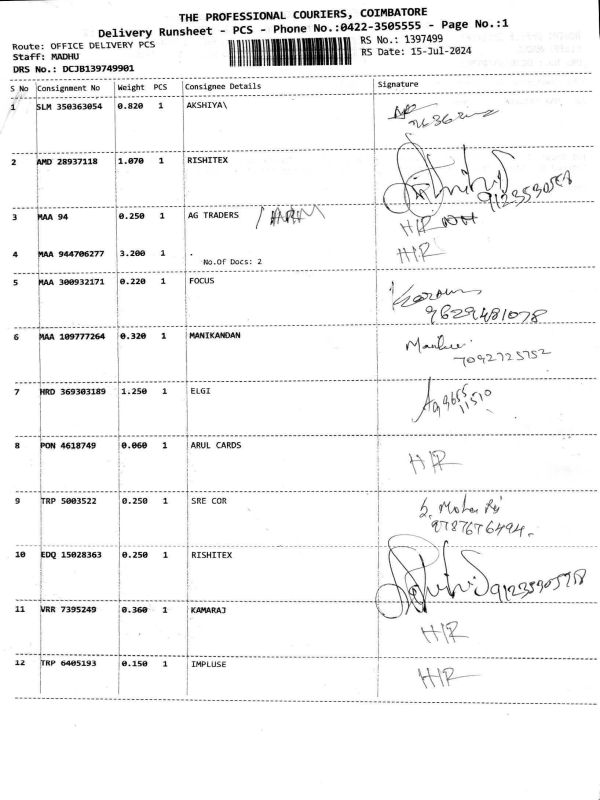 THE PROFESSIONAL COURIERS, COIMBATORE
Delivery Runsheet - PCS - Phone No.:0422-3505555 - Page No.:1
Route: OFFICE DELIVERY PCS
RS No.: 1397499
Staff: MADHU
RS Date: 15-Jul-2024
DRS No.: DCJB139749901
S No Consignment No Weight PCS Consignee Details Signature
1 SLM 350363054 0.820 1 AKSHIYA\
2 AMD 28937118 1.070 1 RISHITEX
3 MAA 94 0.250 1 AG TRADERS H/R
4 MAA 944706277 3.200 1 . H/R
No.Of Docs: 2
5 MAA 300932171 0.220 1 FOCUS
9629481078
6 MAA 109777264 0.320 1 MANIKANDAN
7092725752
7 HRD 369303189 1.250 1 ELGI
9655
11510
8 PON 4618749 0.060 1 ARUL CARDS H/R
9 TRP 5003522 0.250 1 SRE COR
9787676494.
10 EDQ 15028363 0.250 1 RISHITEX
11 VRR 7395249 0.360 1 KAMARAJ
H/R
12 TRP 6405193 0.150 1 IMPLUSE
H/R